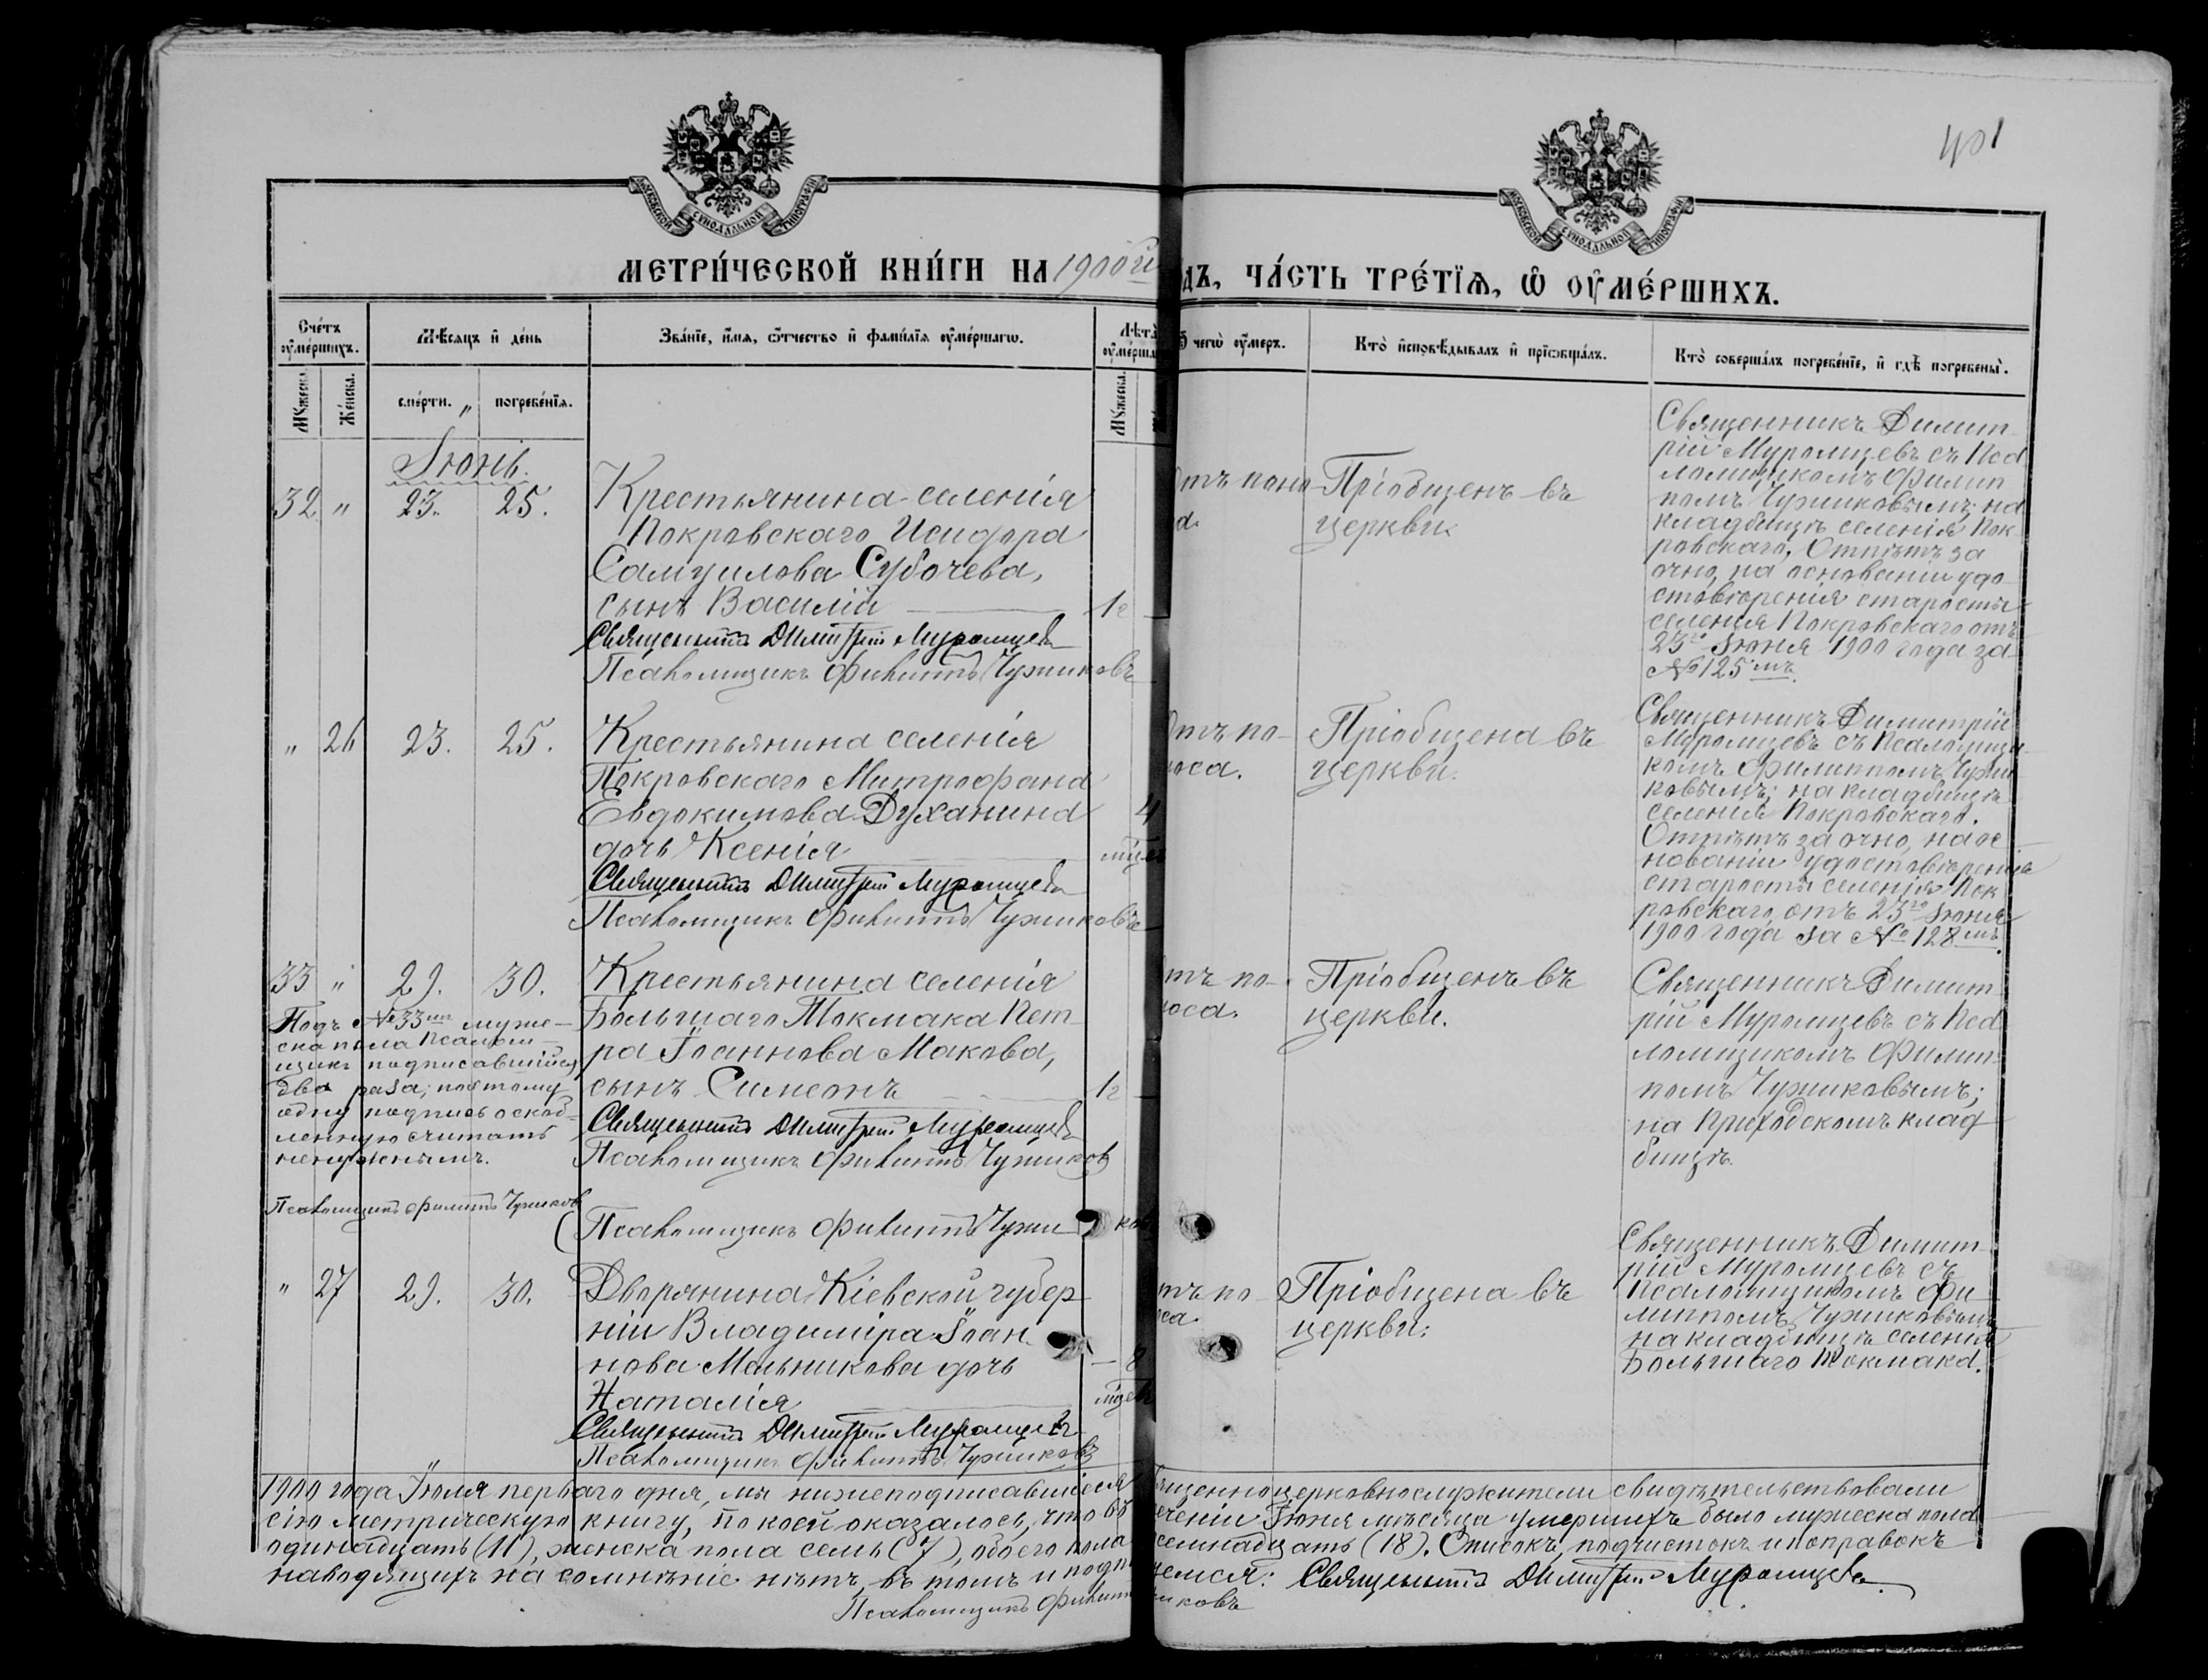 401
МОСКОВСКОЙ СѴНОДАЛЬНОЙ ТИПОГРАФІИ
МОСКОВСКОЙ СѴНОДАЛЬНОЙ ТИПОГРАФІИ
МЕТРИ́ЧЕСКОЙ КНИ́ГИ НА 1900й
дъ, ЧА́СТЬ ТРЕ́ТЇѦ, Ѽ ОУМЕ́РШИХЪ.
Сче́тъ оуме́ршихъ.
Мѣсяцъ и де́нь
Зва́нїе, и́мя, ѻ́тчество и фами́лїя оуме́ршагѡ.
Лѣта оуме́рша
ѿ чегѡ̀ оу́меръ.
Кто̀ исповѣ́дывалъ и прїѡбща́лъ.
Кто̀ соверша́лъ погребе́нїе, и гдѣ̀ погребены̀.
Мꙋжеска.
Же́нска.
сме́рти.
погребе́нїя.
Мꙋжеска.
Іюнь.
32 " 23. 25.
Крестьянина селенія
Покровскаго Исидора
Самуилова Субочева,
сынъ Василій — 1г
Священникъ Димитрій Муромцевъ
Псаломщикъ Филиппъ Чужиковъ
отъ поно
са.
Пріобщенъ въ
церкви.
Священникъ Димит
рій Муромцевъ съ Пса
ломщикомъ Филип
помъ Чужиковымъ; на
кладбищѣ селенія Пок
ровскаго, Отпѣтъ за
очно, на основаніи удо
стовѣренія старосты
селенія Покровскаго отъ
23го Іюня 1900 года за
№ 125мъ.
" 26 23. 25.
Крестьянина селенія
Покровскаго Митрофана
Евдокимова Духанина 4
дочь Ксенія — мѣцев
Священникъ Димитрій Муромцевъ
Псаломщикъ Филиппъ Чужиковъ
Отъ по-
носа.
Пріобщена въ
церкви.
Священникъ Димитрій
Муромцевъ съ Псаломщи
комъ Филиппомъ Чужи
ковымъ; на кладбищѣ
селенія Покровскаго.
Отпѣтъ заочно, на ос
нованіи удостовѣренія
старосты селенія Пок
ровскаго, отъ 23го Іюня
1900 года за № 128мъ.
33 " 29. 30.
Крестьянина селенія
Большаго Токмака Пет-
ра Іоаннова Макова,
сынъ Симеонъ — 1г
Священникъ Димитрій Муромцевъ
Псаломщикъ Филиппъ Чужиковъ
Псаломщикъ Филиппъ Чужиковъ
Подъ №33мъ муже-
ска пола Псалом-
щикъ подписавшійся
два раза; поэтому
одну подпись оскоб-
ленную считать
ненужнымъ.
Псаломщикъ Филиппъ Чужиковъ
отъ по-
носа.
Пріобщенъ въ
церкви.
Священникъ Димит
рій Муромцевъ съ Пса
ломщикомъ Филип-
помъ Чужиковымъ;
на Приходскомъ клад
бищѣ.
" 27 29. 30.
Дворянина Кіевской губер
ніи Владиміра Іоан
нова Мальникова дочь — 8
Наталія — мѣцев
Священникъ Димитрій Муромцевъ
Псаломщикъ Филиппъ Чужиковъ
отъ по
са.
Пріобщена въ
церкви.
Священникъ Димит
рій Муромцевъ съ
Псаломщикомъ Фи
липпомъ Чужиковымъ
на кладбищѣ селенія
Большаго Токмака.
1900 года Іюля перваго дня, мы нижеподписавшіеся священноцерковнослужители свидѣтельствовали
сію метрическую книгу, по коей оказалось, что въ теченіи Іюня мѣсяца умершихъ было мужеска пола
одинадцать (11), женска пола семь (7), обоего пола семнадцать (18). Описокъ, подчистокъ и поправокъ
наводящихъ на сомнѣніе нѣтъ, въ томъ и подпишемся: Священникъ Димитрій Муромцевъ.
Псаломщикъ Филиппъ Чужиковъ